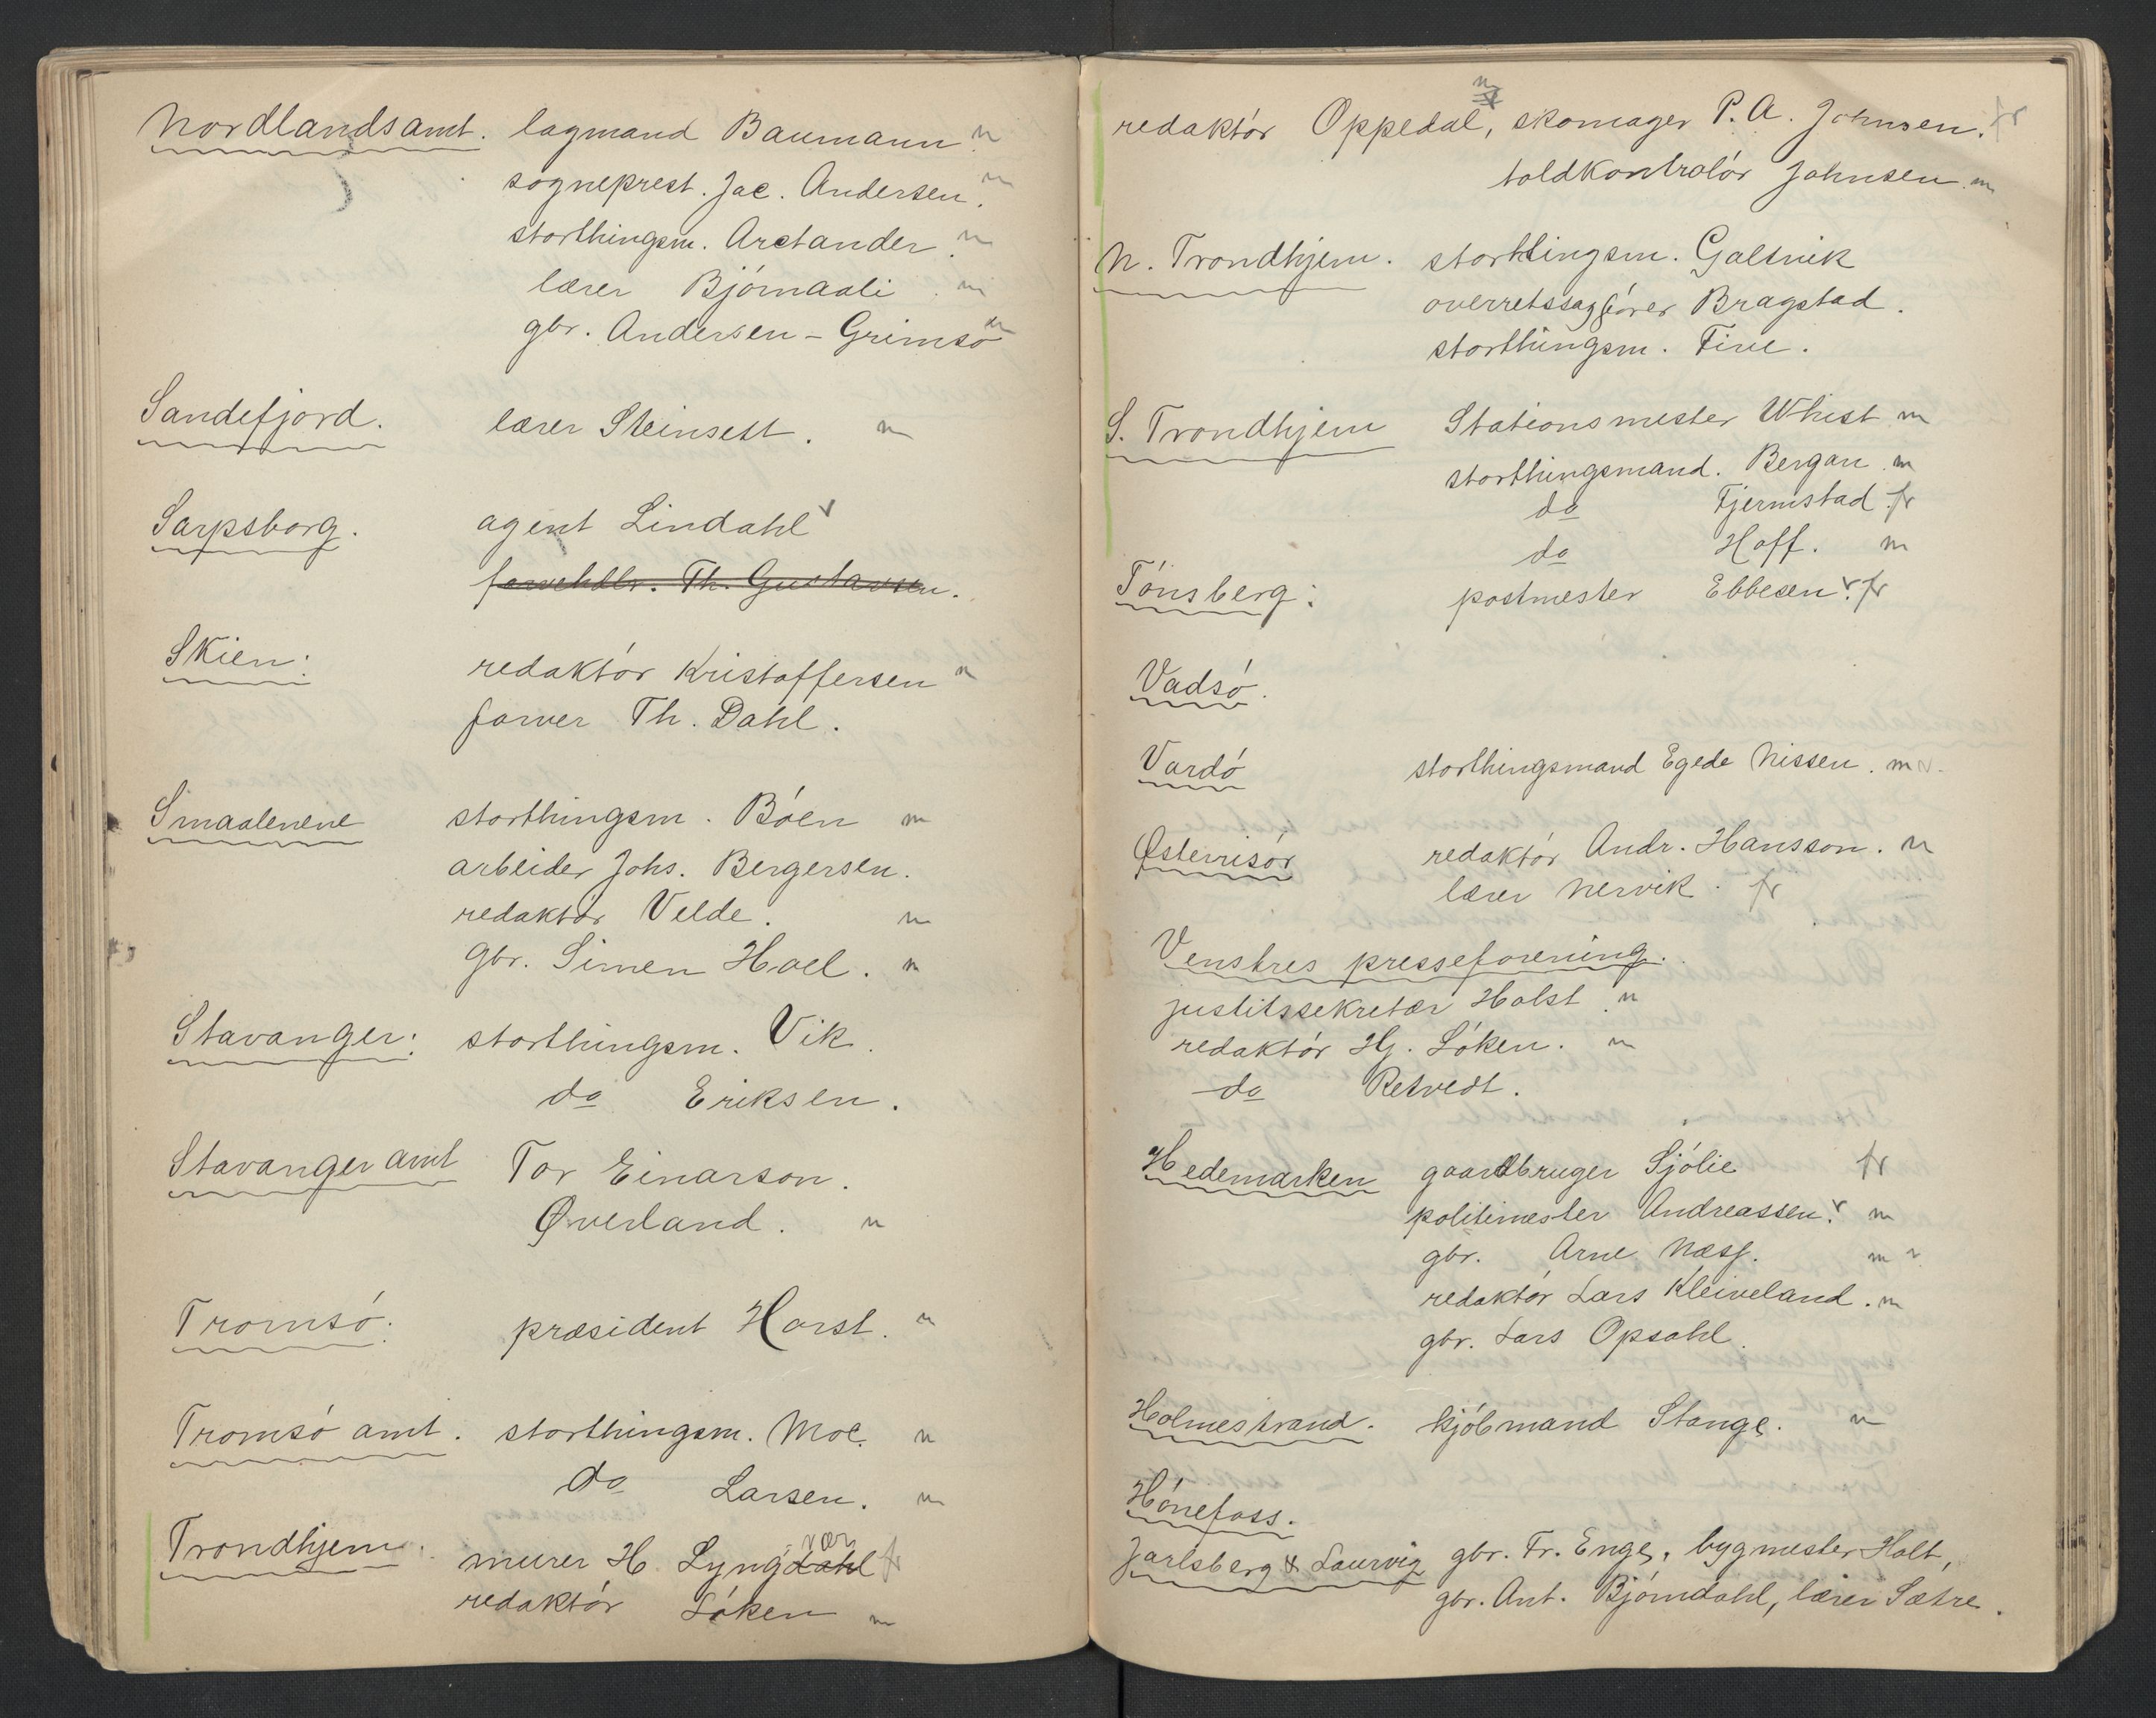 Nordlandsamt. lagmand Baumann. n
sogneprest. Jac. Andersen. m
storthingsm. Arctander. m
lærer Bjørnaali. m
gbr. Andersen - Grimsø m
Sandefjord. lærer Steinsett. m
Sarpsborg. agent Lindahl v
farvehdlr. Th. Gustavsen.
Skien: redaktór Kristoffersen n
farver Th. Dahl.
Smaalenene storthingsm. Bóen m
arbeider Johs. Bergersen.
redaktór Velde. m
Gbr. Simen Hoel. m
Stavanger: storthingsm. Vik.
do Eriksen.
Stavanger amt Tor Einarson.
Øverland. n
Tromsó. præsident Horst. n
Tromsó amt. storthingsm. Moe. n
do Larsen. m
Trondhjem. murer H. Lyngdahl vær fr
redaktór Lóken m
redaktór Oppedal, m skomager P. A. Johnsen. fr
toldkontrolór Johnsen. m
N. Trondhjem. storthingsm. Galtvik
overretssagfórer Bragstad.
storthingsm. Five.
S. Trondhjem Stationsmester Whist m
storthingsmand. Bergan m
do Fjermstad fr
do Hoff. m
Tónsberg: postmester Ebbesen. v fr
Vadsó.
Vardó storthingsmand Egede Nissen. m v.
Østerrisór redaktór Andr. Hansson. n
lærer Nervik. fr
Venstres presseforening.
justitssekretær Holst. n
redaktór Hj. Lóken. n
do Retvedt.
Hedemarken gaardbruger Sjólie fr
politimester Andreassen. v m
gbr. Arne Næss. m v
redaktór Lars Kleiveland. m
gbr. Lars Opsahl.
Holmestrand. kjóbmand Stange. n
Hónefoss.
Jarlsberg & Laurvig gbr. Fr. Enge, bygmester Holt,
gbr. Ant. Bjórndahl, lærer Sætre.